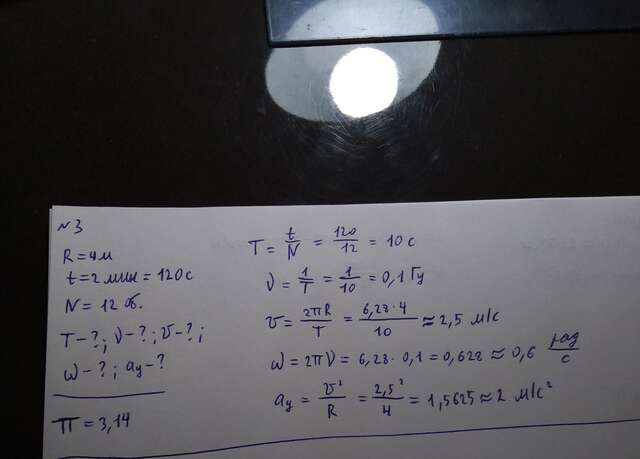 №3
R = 4м
t = 2 мин = 120 с
N = 12 об.
T - ?; ν - ?; v - ?;
ω - ?; aц - ?
π = 3,14
T = t/N = 120/12 = 10 с
ν = 1/T = 1/10 = 0,1 Гц
v = 2πR/T = 6,28·4/10 ≈ 2,5 м/с
ω = 2πν = 6,28·0,1 = 0,628 ≈ 0,6 рад/с
aц = v²/R = 2,5²/4 = 1,5625 ≈ 2 м/с²